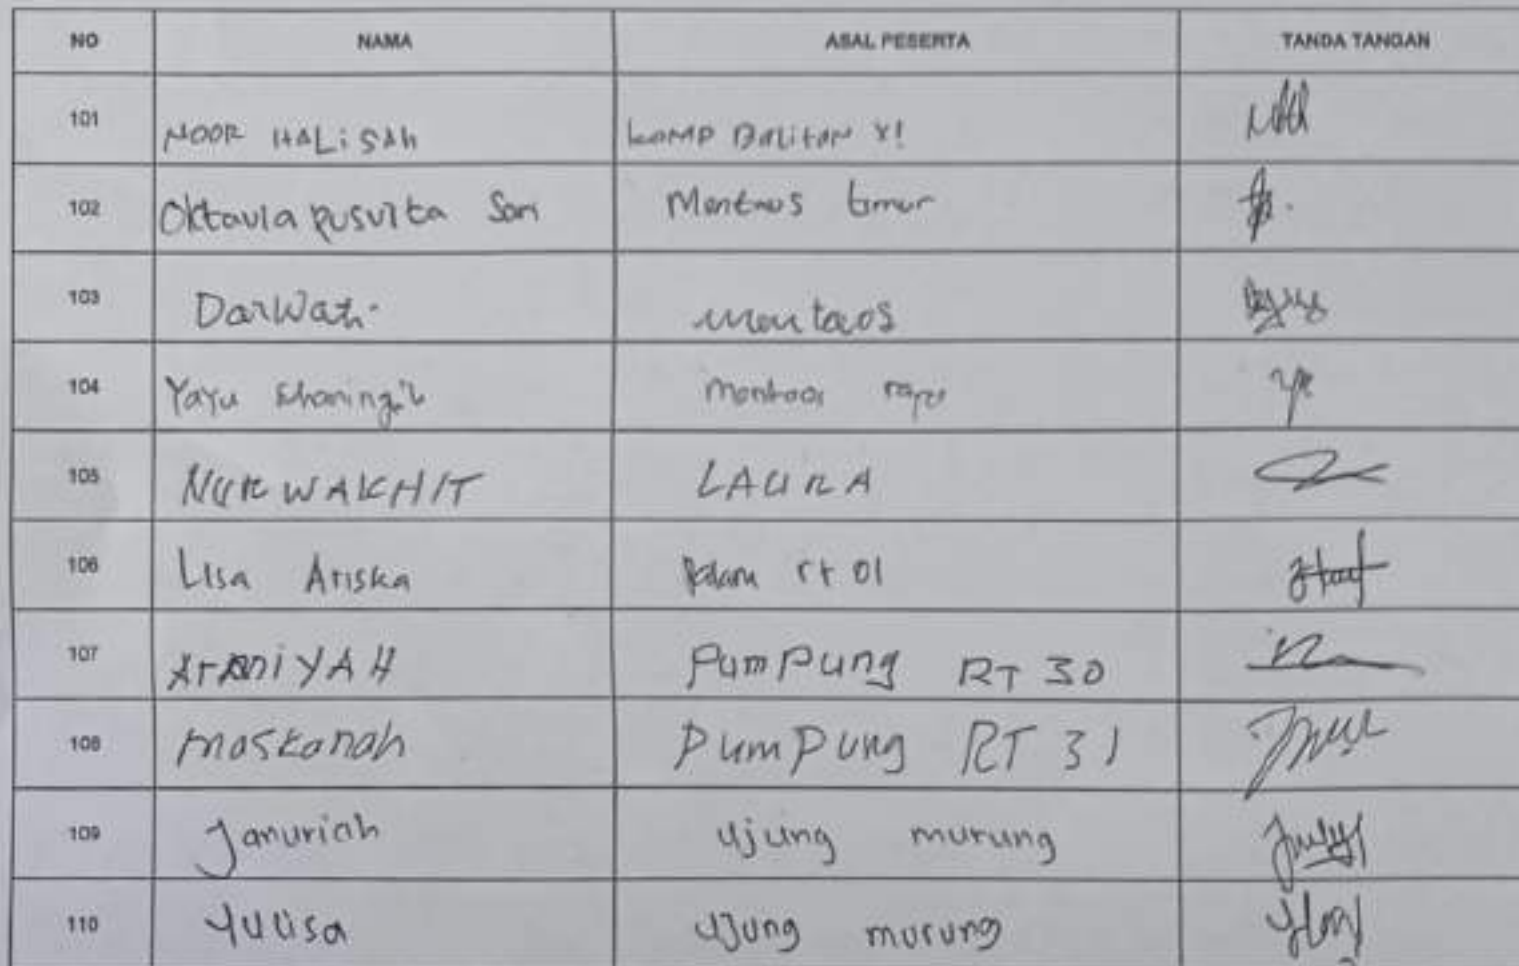 NO NAMA ASAL PESERTA TANDA TANGAN
101 NOOR HALiSAh KOMP BALITAN XI
102 Oktavia pusvita Sari Mentaos timur
103 Darwati mentaos
104 Yayu mentaos raya
105 NUR WAKHIT LAURA
106 Lisa Ariska Palam rt 01
107 PumPung RT 30
108 maskanah PumPung RT 31
109 Januriah ujung murung
110 Yulisa ujung murung